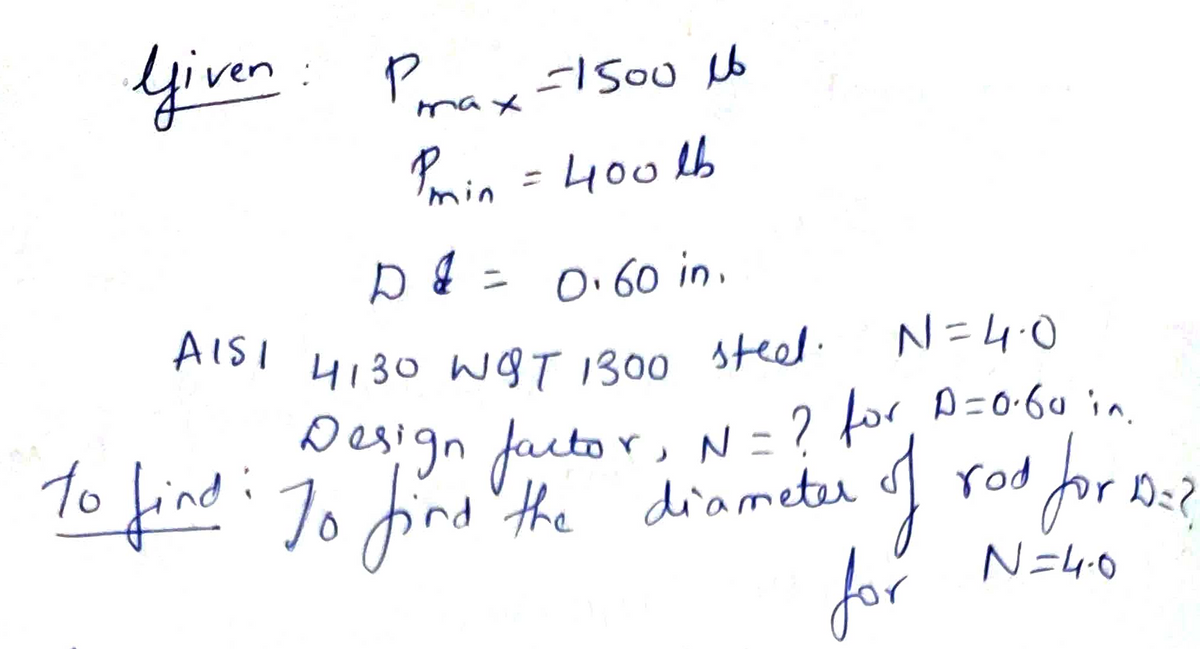 Given : Pmax = 1500 lb
Pmin = 400 lb
D = 0.60 in.
AISI 4130 WQT 1300 steel. N = 4.0
Design factor, N = ? for D = 0.60 in.
To find : To find the diameter of rod for D = ?
for N = 4.0